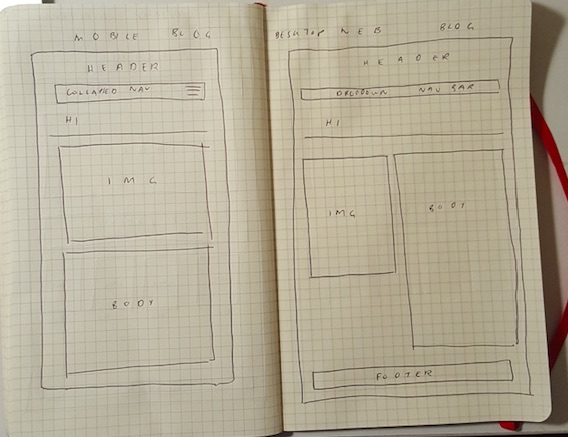 MOBILE BLOG
HEADER
COLLAPSED NAV
H1
IMG
BODY
DESKTOP WEB BLOG
HEADER
DROPDOWN NAV BAR
H1
IMG
BODY
FOOTER